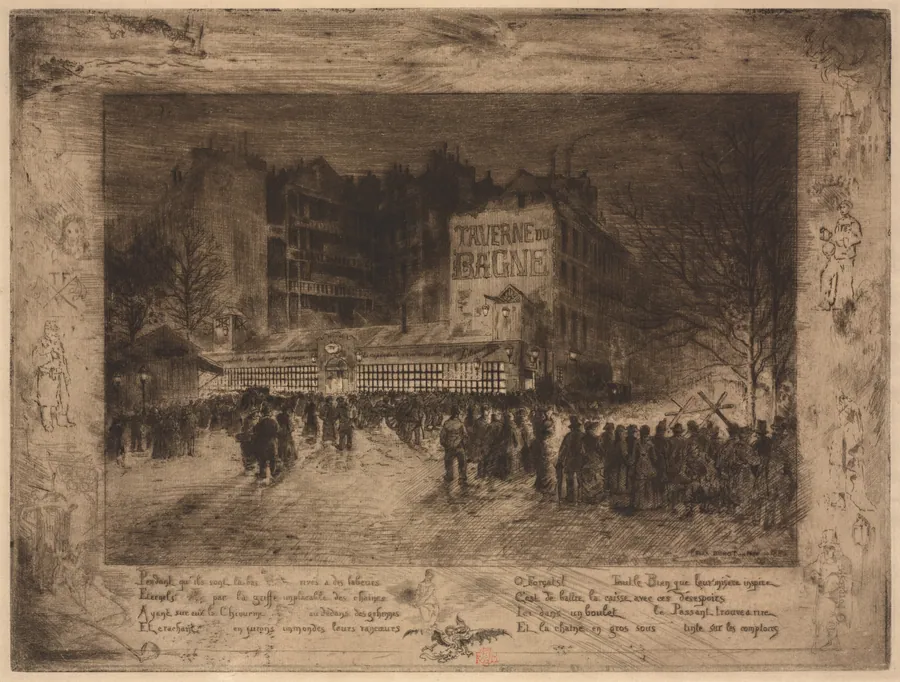 TF
TAVERNE DU
BAGNE
Pendant qu'ils sont là-bas rivés a des labeurs
Eternels par la griffe implacable des chaînes
Ayant sur eux la Chiourme, au dedans des gehennes
Et crachant en jurons immondes leurs rancœurs
O Forçats! Tout le Bien que leur misère inspire
C'est de battre la caisse avec ces desespoirs
Car dans un boulet le Passant trouve a rire
Et la chaîne en gros sous tinte sur les comptoirs